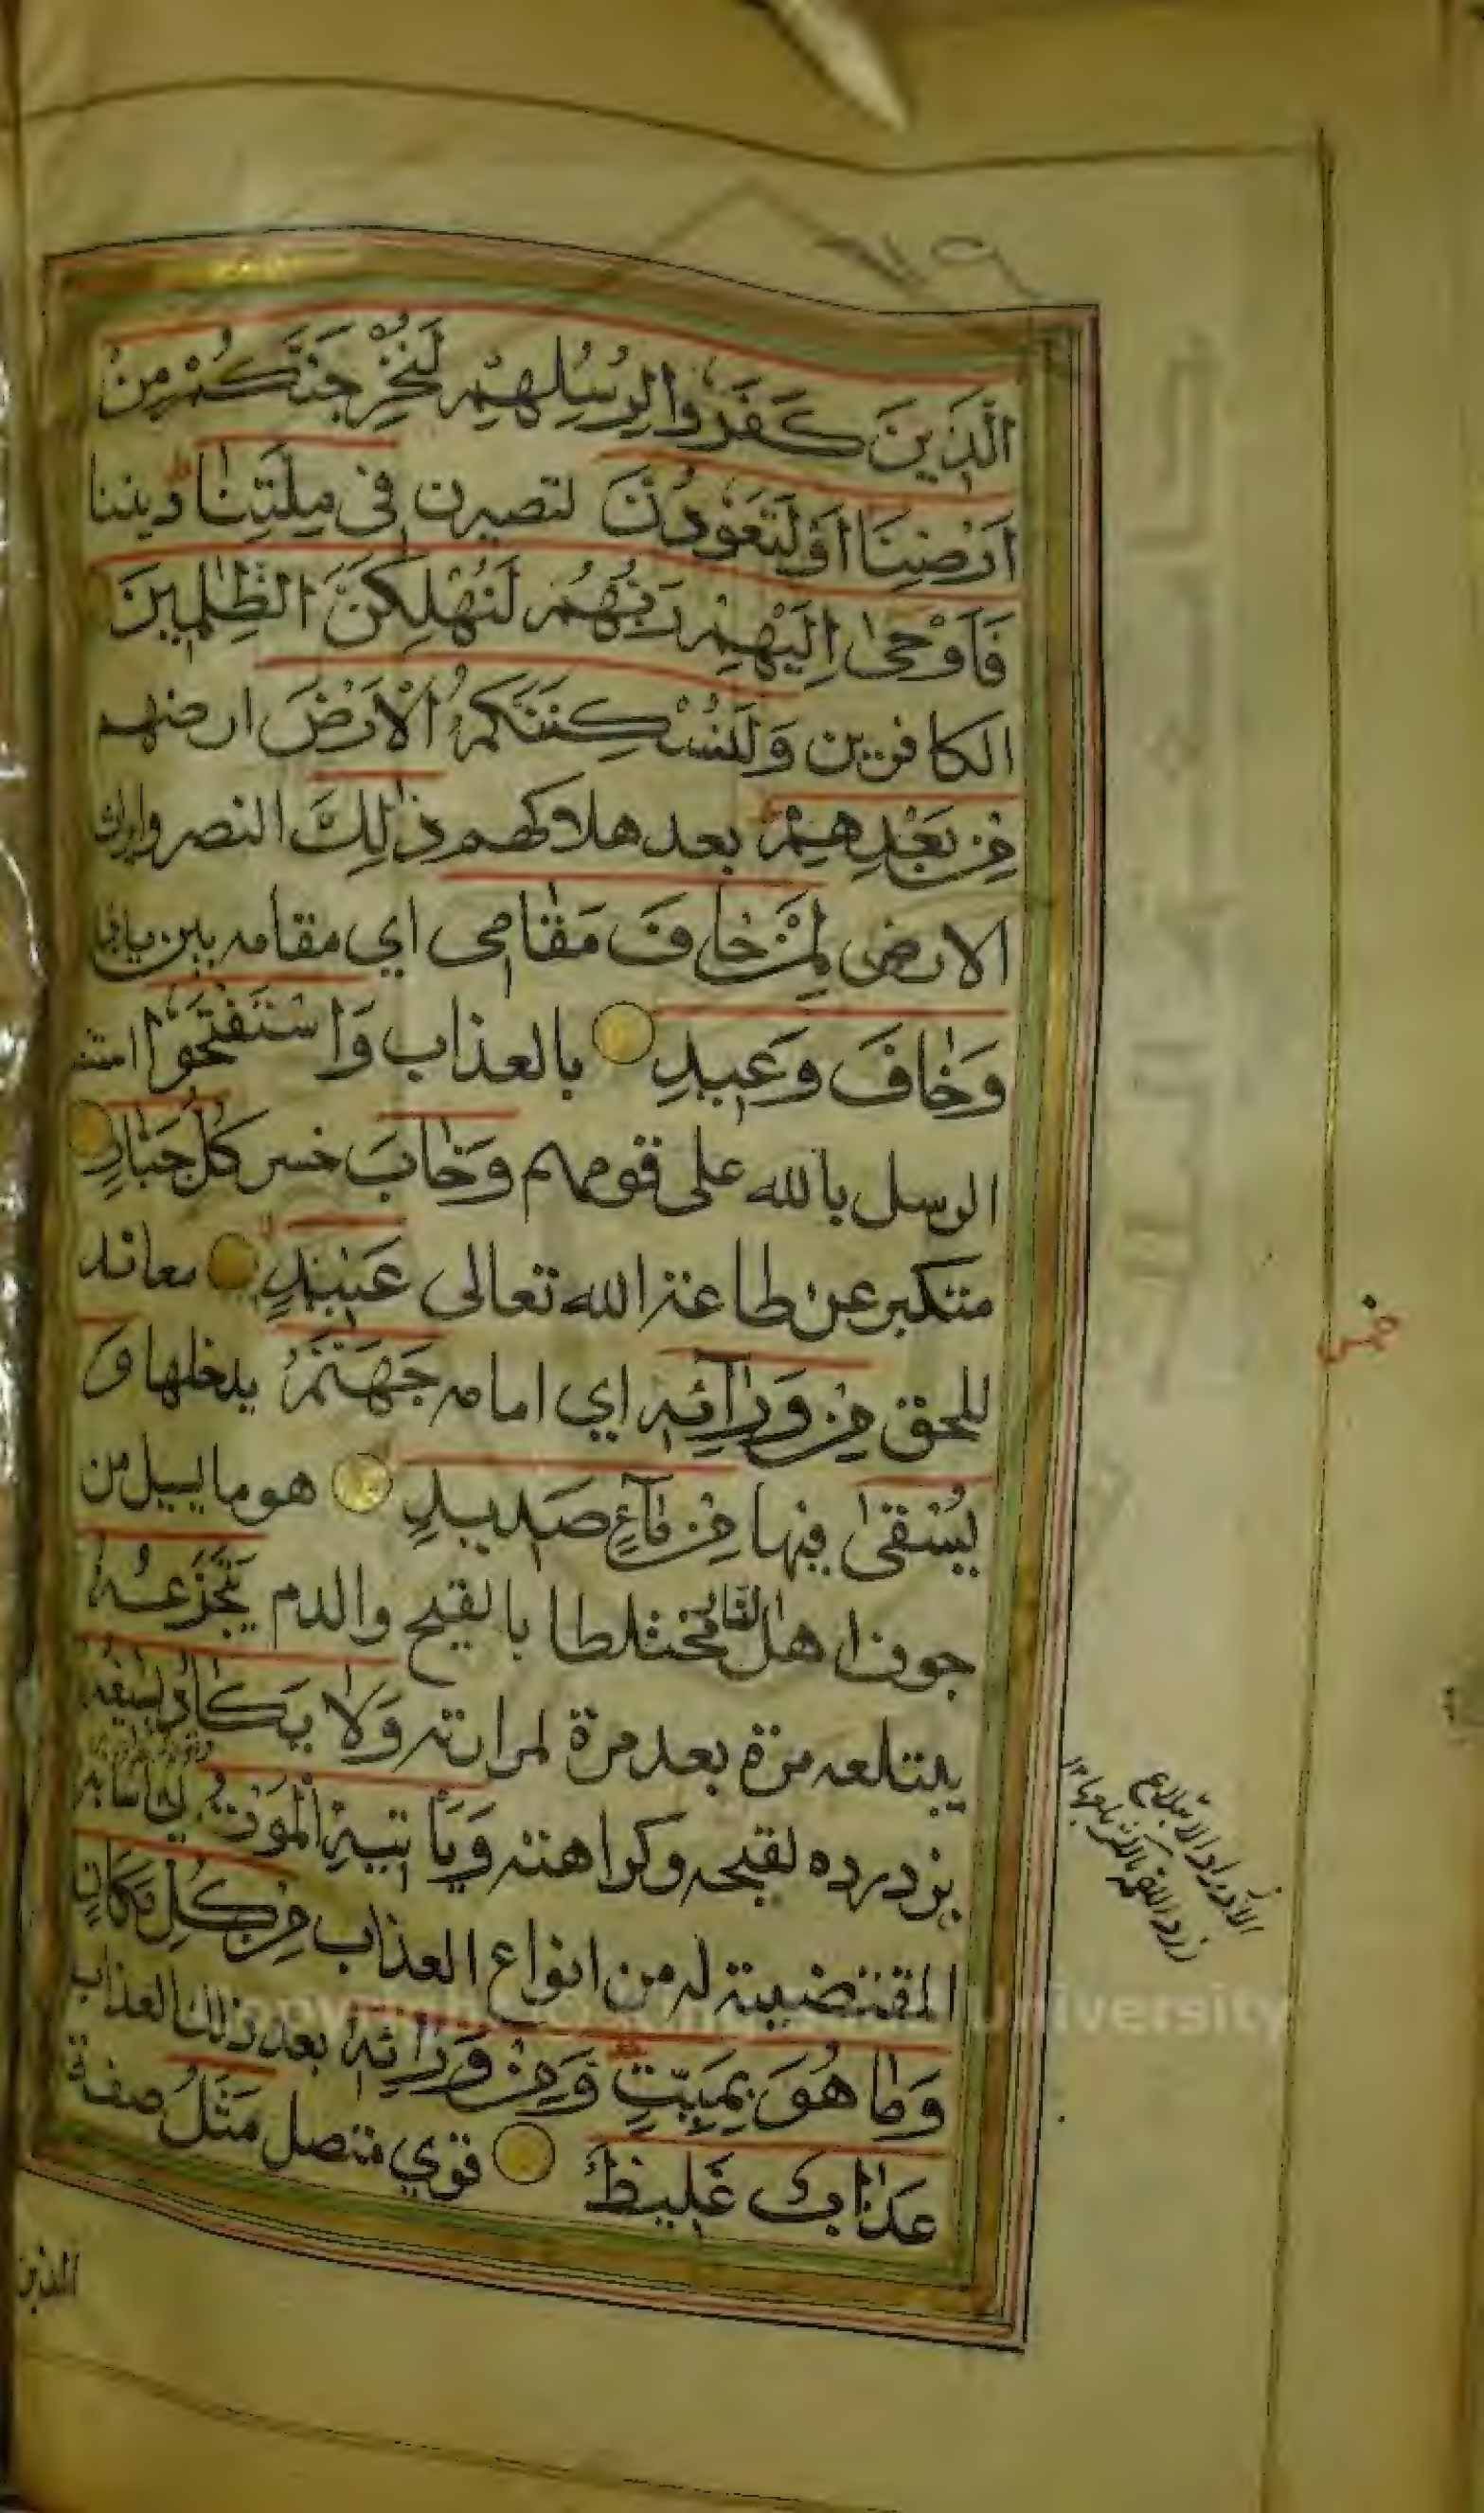 الَّذِينَ كَفَرُوا لِرُسُلِهِمْ لَنُخْرِجَنَّكُمْ مِنْ
اَرْضِنَا اَوْ لَتَعُودُنَّ لتصيرن فِي مِلَّتِنَا ديننا
فَاَوْحٰى اِلَيْهِمْ رَبُّهُمْ لَنُهْلِكَنَّ الظّٰلِمِينَ
الكافرين وَلَنُسْكِنَنَّكُمُ الْاَرْضَ ارضهم
مِنْ بَعْدِهِمْ بعد هلاكهم ذٰلِكَ النصر وايراث
الارض لِمَنْ خَافَ مَقَامِي اي مقامه بين
وَخَافَ وَعِيدِ بالعذاب وَاسْتَفْتَحُوا
الرسل بالله على قومهم وَخَابَ خسر كُلُّ جَبَّارٍ
متكبر عن طاعة الله تعالى عَنِيدٍ معاند
للحق مِنْ وَرَآئِهِ اي امامه جَهَنَّمُ يدخلها وَ
يُسْقٰى فيها مِنْ مَآءٍ صَدِيدٍ هو ما يسيل من
جوف اهل النار مختلطا بالقيح والدم يَتَجَرَّعُهُ
يبتلعه مرة بعد مرة لمرارته وَلَا يَكَادُ يُسِيغُهُ
يزدرده لقبحه وكراهته وَيَأْتِيهِ الْمَوْتُ اي اسبابه
المقتضية له من انواع العذاب مِنْ كُلِّ مَكَانٍ
وَمَا هُوَ بِمَيِّتٍ وَمِنْ وَرَائِهِ بعد ذلك العذاب
عَذَابٌ غَلِيظٌ قوي متصل مَثَلُ صفة
الذين
خمس
الازدراد الابتلاع
زرد اللقمة بالكسر بلعها ١٢
University